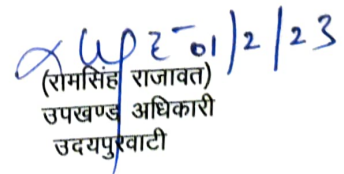 01/2/23
(रामसिंह राजावत)
उपखण्ड अधिकारी
उदयपुरवाटी